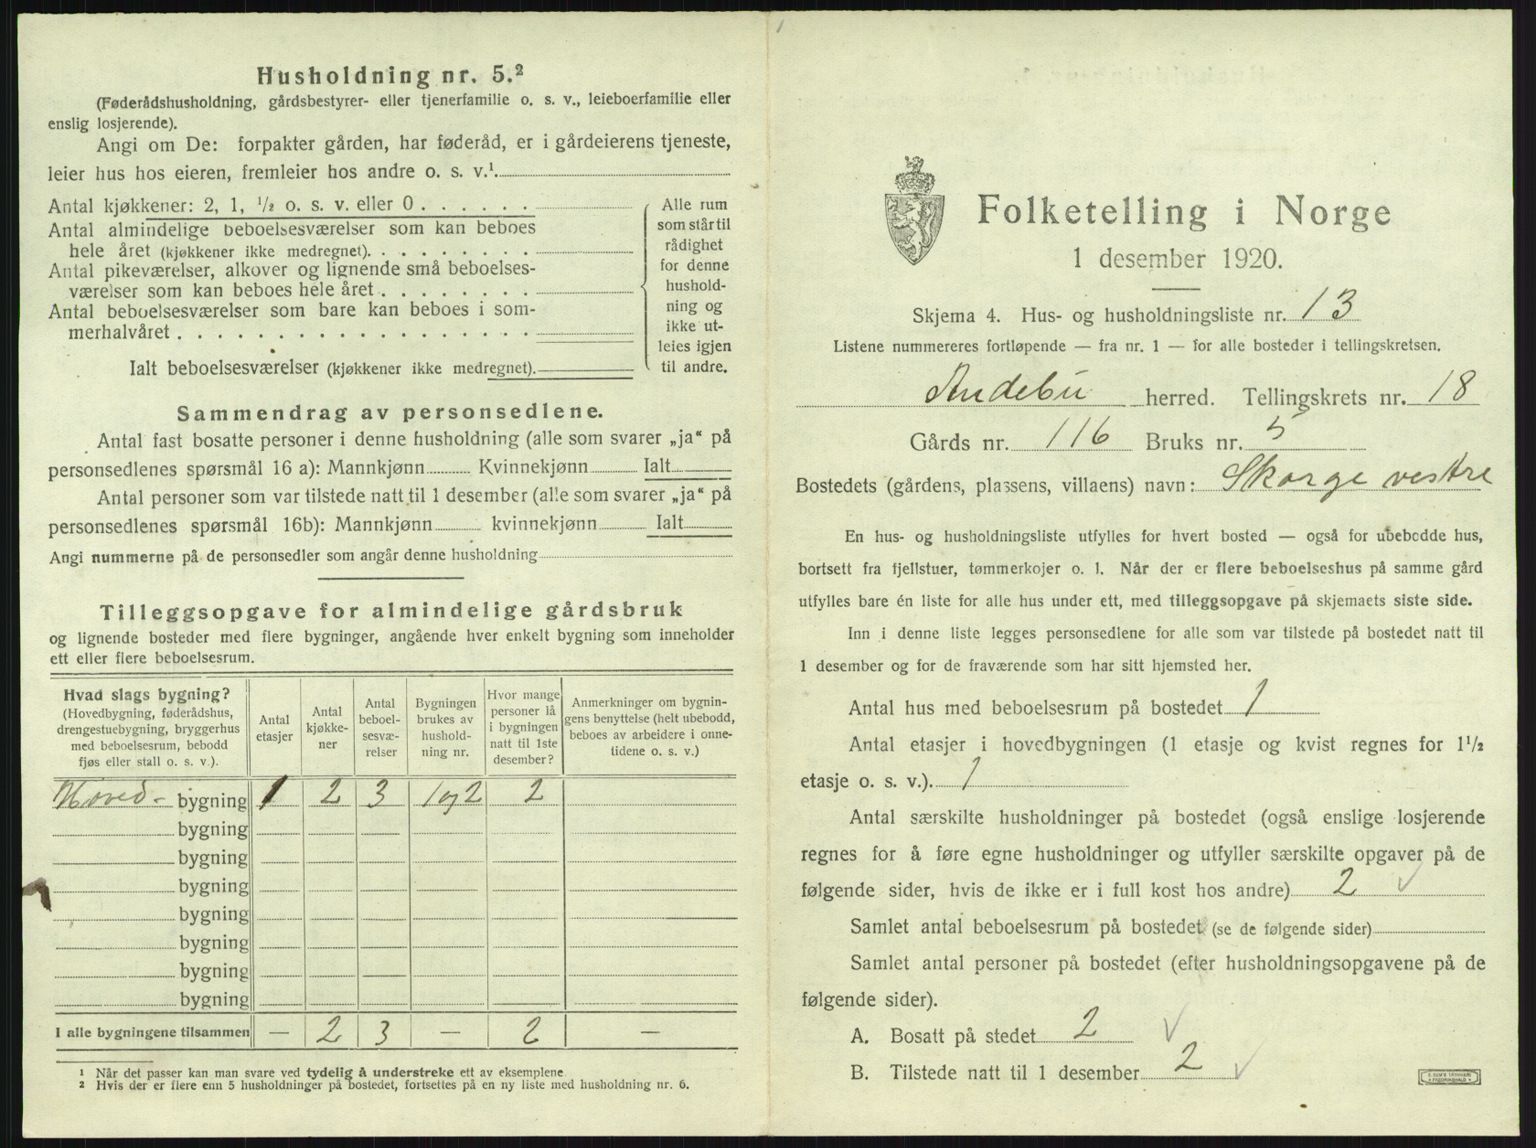 Husholdning nr. 5.²
(Føderådshusholdning, gårdsbestyrer- eller tjenerfamilie o. s. v., leieboerfamilie eller
enslig losjerende).
Angi om De: forpakter gården, har føderåd, er i gårdeierens tjeneste,
leier hus hos eieren, fremleier hos andre o. s. v.¹
Antal kjøkkener: 2, 1, ½ o. s. v. eller 0 . . . . . .
Antal almindelige beboelsesværelser som kan beboes
hele året (kjøkkener ikke medregnet). . . . . . . . .
Antal pikeværelser, alkover og lignende små beboelses-
værelser som kan beboes hele året . . . . . . . .
Antal beboelsesværelser som bare kan beboes i som-
merhalvåret . . . . . . . . . . . . . . . . . .
Ialt beboelsesværelser (kjøkkener ikke medregnet).
Alle rum
som står til
rådighet
for denne
hushold-
ning og
ikke ut-
leies igjen
til andre.
Sammendrag av personsedlene.
Antal fast bosatte personer i denne husholdning (alle som svarer „ja“ på
personsedlenes spørsmål 16 a): Mannkjønn Kvinnekjønn Ialt
Antal personer som var tilstede natt til 1 desember (alle som svarer „ja“ på
personsedlenes spørsmål 16b): Mannkjønn kvinnekjønn Ialt
Angi nummerne på de personsedler som angår denne husholdning
Tilleggsopgave for almindelige gårdsbruk
og lignende bosteder med flere bygninger, angående hver enkelt bygning som inneholder
ett eller flere beboelsesrum.
Hvad slags bygning?
(Hovedbygning, føderådshus,
drengestuebygning, bryggerhus
med beboelsesrum, bebodd
fjøs eller stall o. s. v.).
Antal
etasjer
Antal
kjøkke-
ner
Antal
beboel-
sesvæ-
relser
Bygningen
brukes av
hushold-
ning nr.
Hvor mange
personer lå
i bygningen
natt til 1ste
desember?
Anmerkninger om bygnin-
gens benyttelse (helt ubebodd,
beboes av arbeidere i onne-
tidene o. s. v.)
Hoved- bygning 1 2 3 1 og 2 2
bygning
bygning
bygning
bygning
bygning
bygning
bygning
I alle bygningene tilsammen — 2 3 — 2 —
¹ Når det passer kan man svare ved tydelig å understreke ett av eksemplene
² Hvis der er flere enn 5 husholdninger på bostedet, fortsettes på en ny liste med husholdning nr. 6.
Folketelling i Norge
1 desember 1920.
Skjema 4. Hus- og husholdningsliste nr. 13
Listene nummereres fortløpende — fra nr. 1 — for alle bosteder i tellingskretsen.
Andebu herred. Tellingskrets nr. 18
Gårds nr. 116 Bruks nr. 5
Bostedets (gårdens, plassens, villaens) navn: Skorge vestre
En hus- og husholdningsliste utfylles for hvert bosted — også for ubebodde hus,
bortsett fra fjellstuer, tømmerkojer o. l. Når der er flere beboelseshus på samme gård
utfylles bare én liste for alle hus under ett, med tilleggsopgave på skjemaets siste side.
Inn i denne liste legges personsedlene for alle som var tilstede på bostedet natt til
1 desember og for de fraværende som har sitt hjemsted her.
Antal hus med beboelsesrum på bostedet 1
Antal etasjer i hovedbygningen (1 etasje og kvist regnes for 1½
etasje o. s. v.). 1
Antal særskilte husholdninger på bostedet (også enslige losjerende
regnes for å føre egne husholdninger og utfyller særskilte opgaver på de
følgende sider, hvis de ikke er i full kost hos andre) 2 ✓
Samlet antal beboelsesrum på bostedet (se de følgende sider)
Samlet antal personer på bostedet (efter husholdningsopgavene på de
følgende sider).
A. Bosatt på stedet 2 ✓
B. Tilstede natt til 1 desember 2 ✓